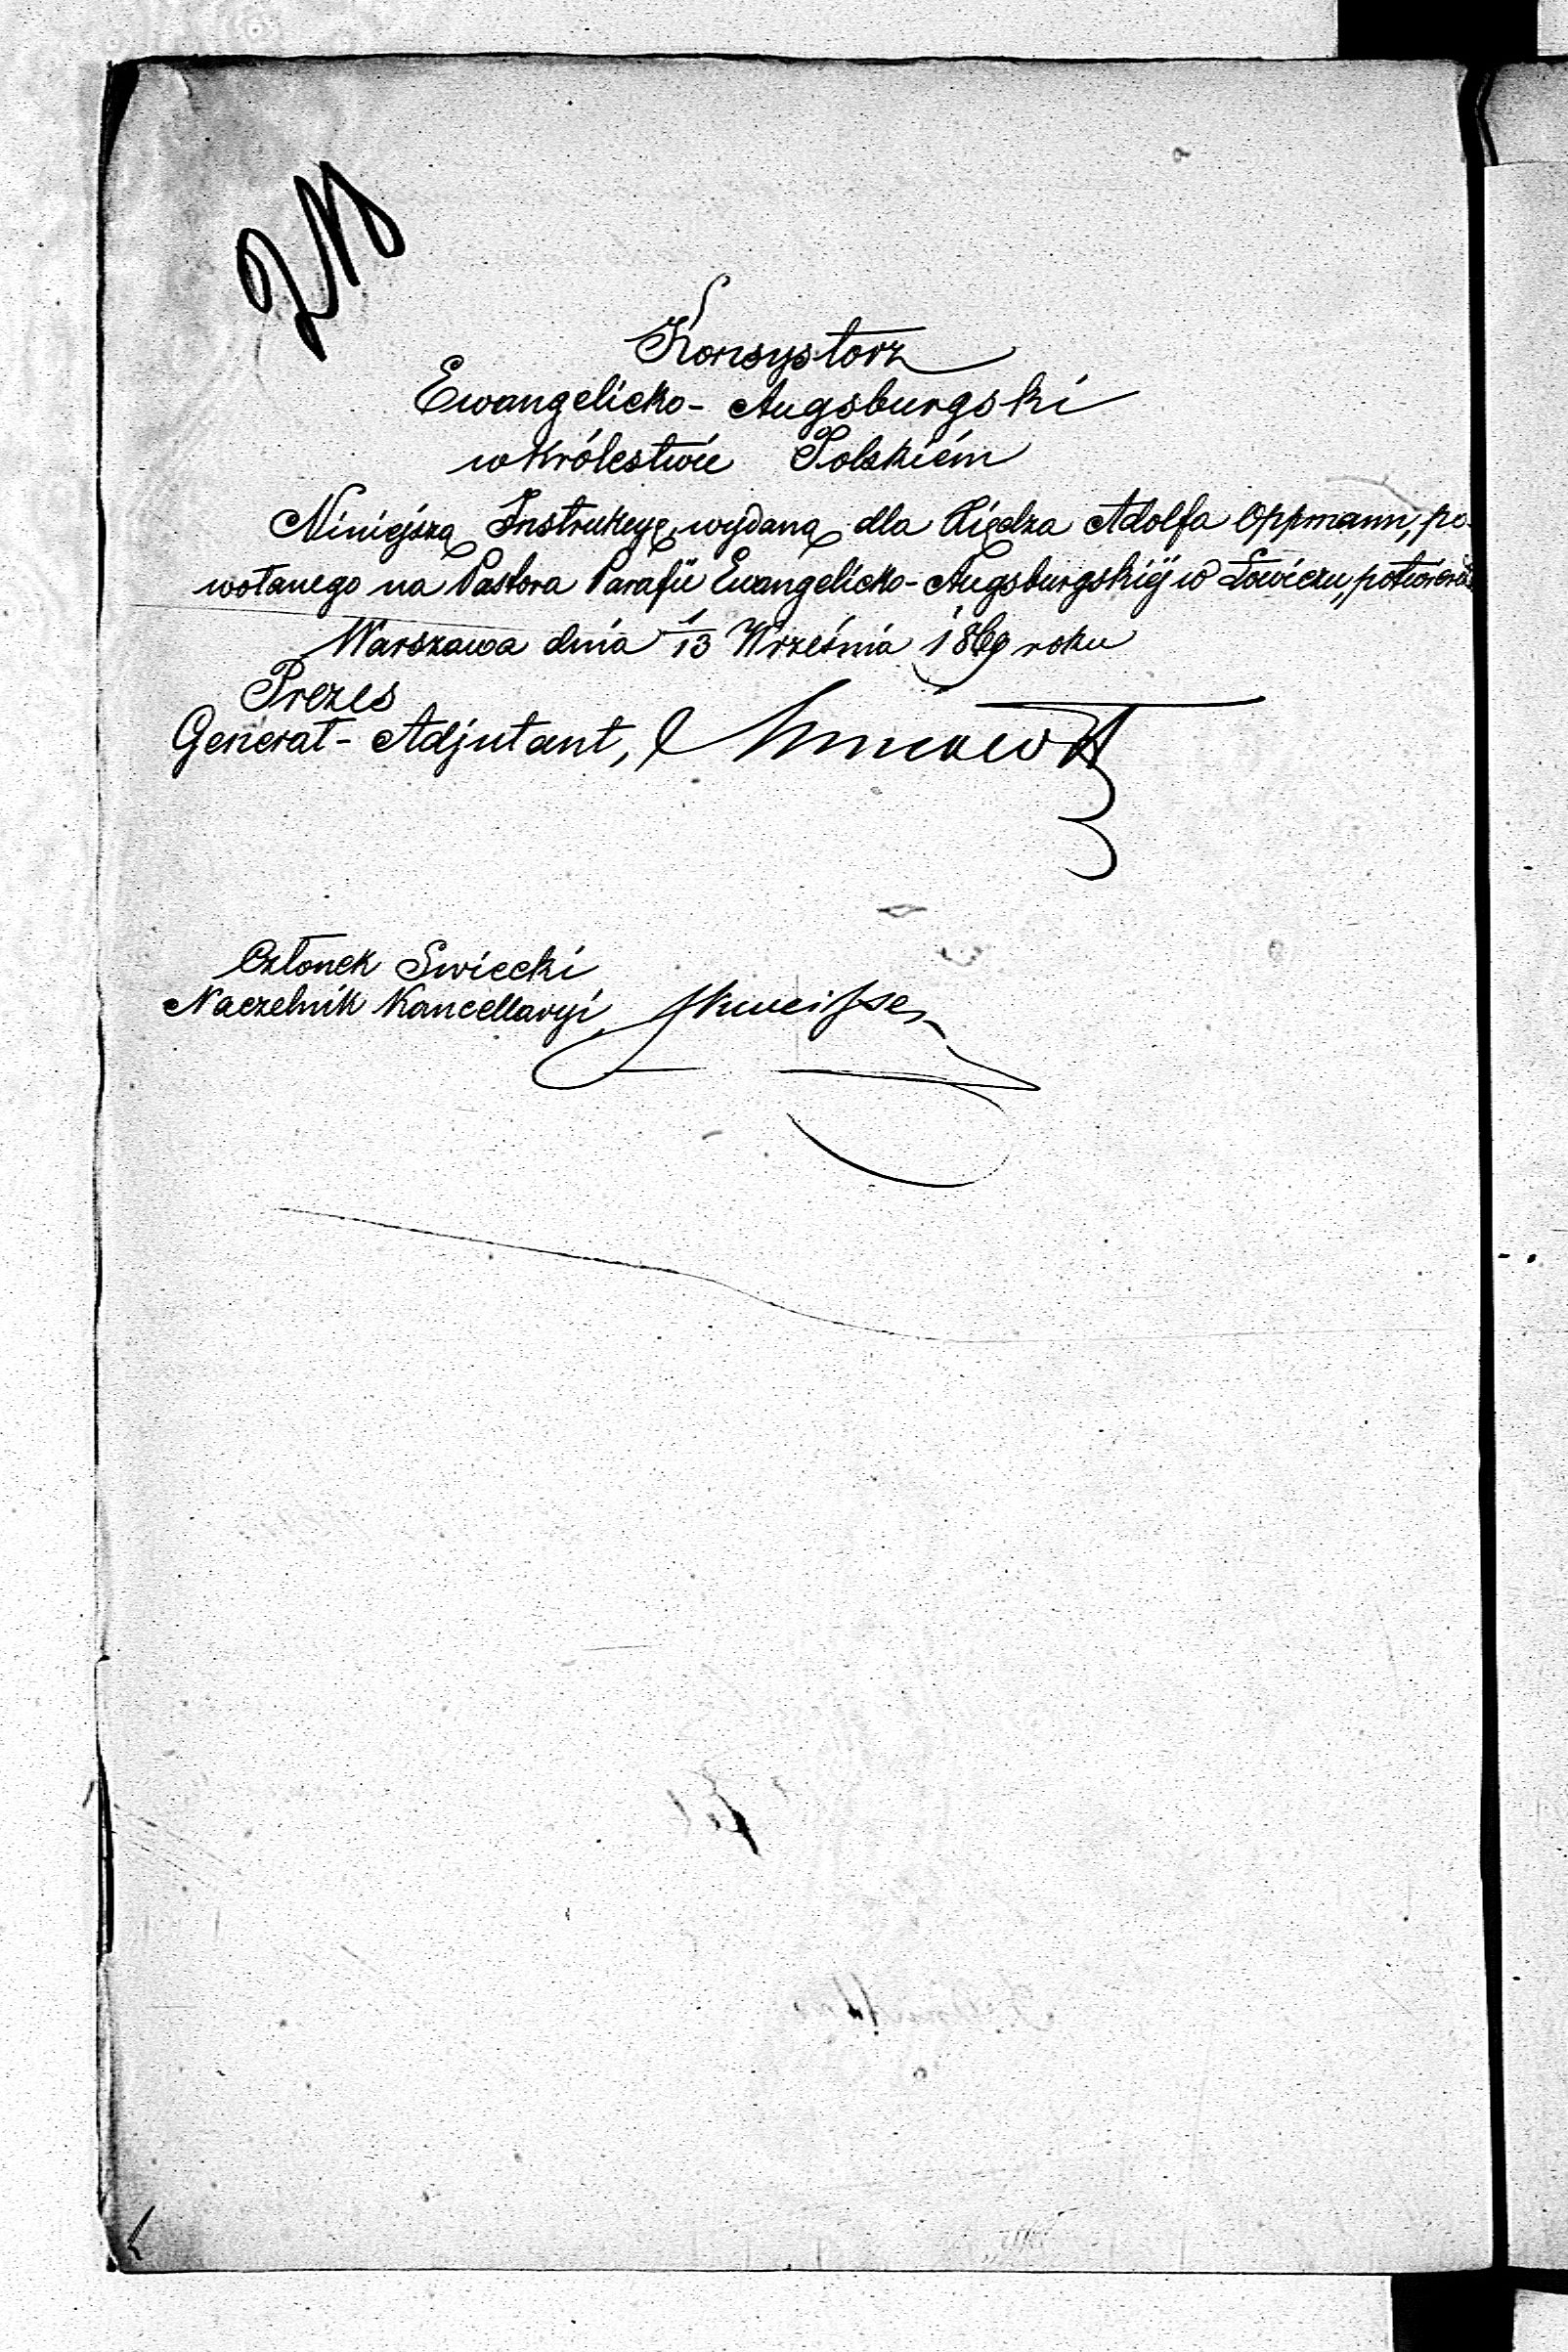 Konsystorz
Ewangelicko-Augsburgski
w Królestwie Polskiém
Niniejszą Instrukcyę wydaną dla Księdza Adolfa Oppmann, po-
wołanego na Pastora Parafii Ewangelicko-Augsburgskiéj w Łowiczu, potwierdza
Warszawa dnia 1/13 Września 1869 roku
Prezes
Generał-Adjutant,
Członek Swiecki
Naczelnik Kancellaryi